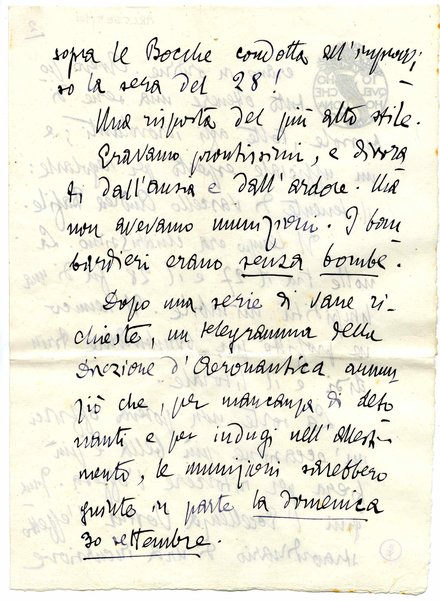 sopra le Bocche condotta all'improvvi
so la sera del 28!
Una risposta del più alto stile.
Eravamo prontissimi, e divora
ti dall'ansia e dall'ardore. Ma
non avevamo munizioni. I bom
bardieri erano senza bombe.
Dopo una serie di vane ri-
chieste, un telegramma della
Direzione d'Aeronautica annun
ziò che, per mancanza di deto
nanti e per indugi nell'allesti
mento, le munizioni sarebbero
giunte in parte la domenica
30 settembre.